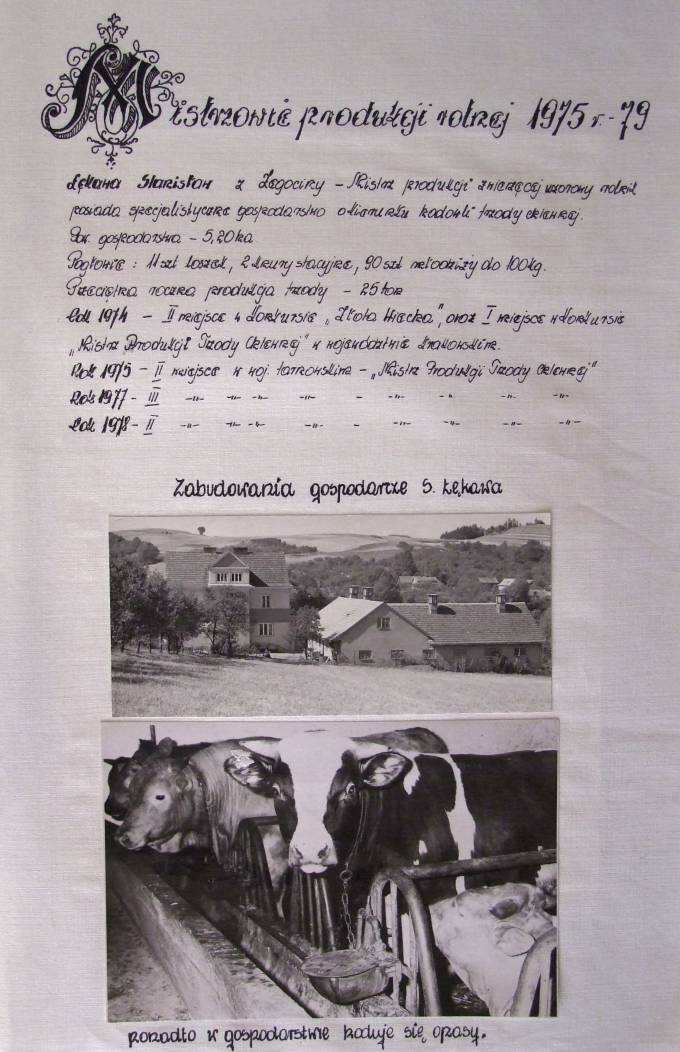 Mistrzowie produkcji rolnej 1975 r. - 79
Łękawa Stanisław z Żegociny – Mistrz produkcji zwierzęcej wzorowy rolnik
posiada specjalistyczne gospodarstwo o kierunku hodowli trzody chlewnej.
Pow. gospodarstwa – 5,20 ha
Pogłowie : 11 szt loszek, 2 knury stacyjne, 90 szt młodzieży do 100 kg.
Przeciętna roczna produkcja trzody – 25 ton
Rok 1974 – II miejsce w konkursie „Złota Wiecha", oraz I miejsce w konkursie
„Mistrz Produkcji Trzody Chlewnej" w województwie krakowskim.
Rok 1975 – II miejsce w woj. tarnowskim – „Mistrz Produkcji Trzody Chlewnej"
Rok 1977 – III -"- -"- -"- -"- - -"- -"- -"- -"-
Rok 1978 – II -"- -"- -"- -"- - -"- -"- -"- -"-
Zabudowania gospodarcze S. Łękawa
ponadto w gospodarstwie hoduje się opasy.